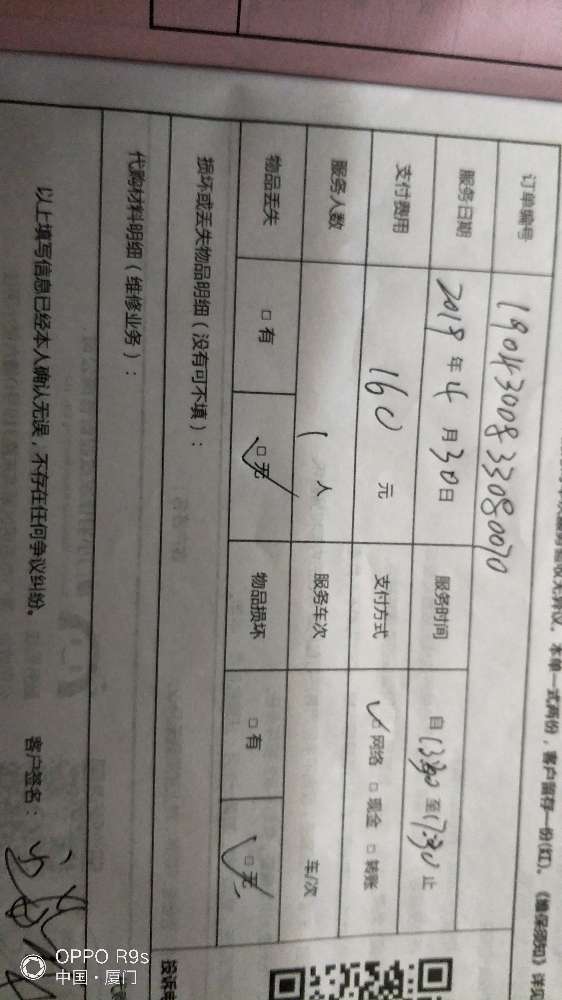 本单一式两份，客户留存一份(红)。《维保须知》详见
订单编号 1904300833080070
服务日期 2019 年 4 月 30 日 服务时间 自 13:30 至 17:30 止
支付费用 160 元 支付方式 ✓ 网络 □ 现金 □ 转账
服务人数 1 人 服务车次 车/次
物品丢失 □ 有 □ 无 ✓ 物品损坏 □ 有 □ 无 ✓
损坏或丢失物品明细（没有可不填）：
代购材料明细（维修业务）：
以上填写信息已经本人确认无误，不存在任何争议纠纷。 客户签名：
投诉
OPPO R9s
中国·厦门